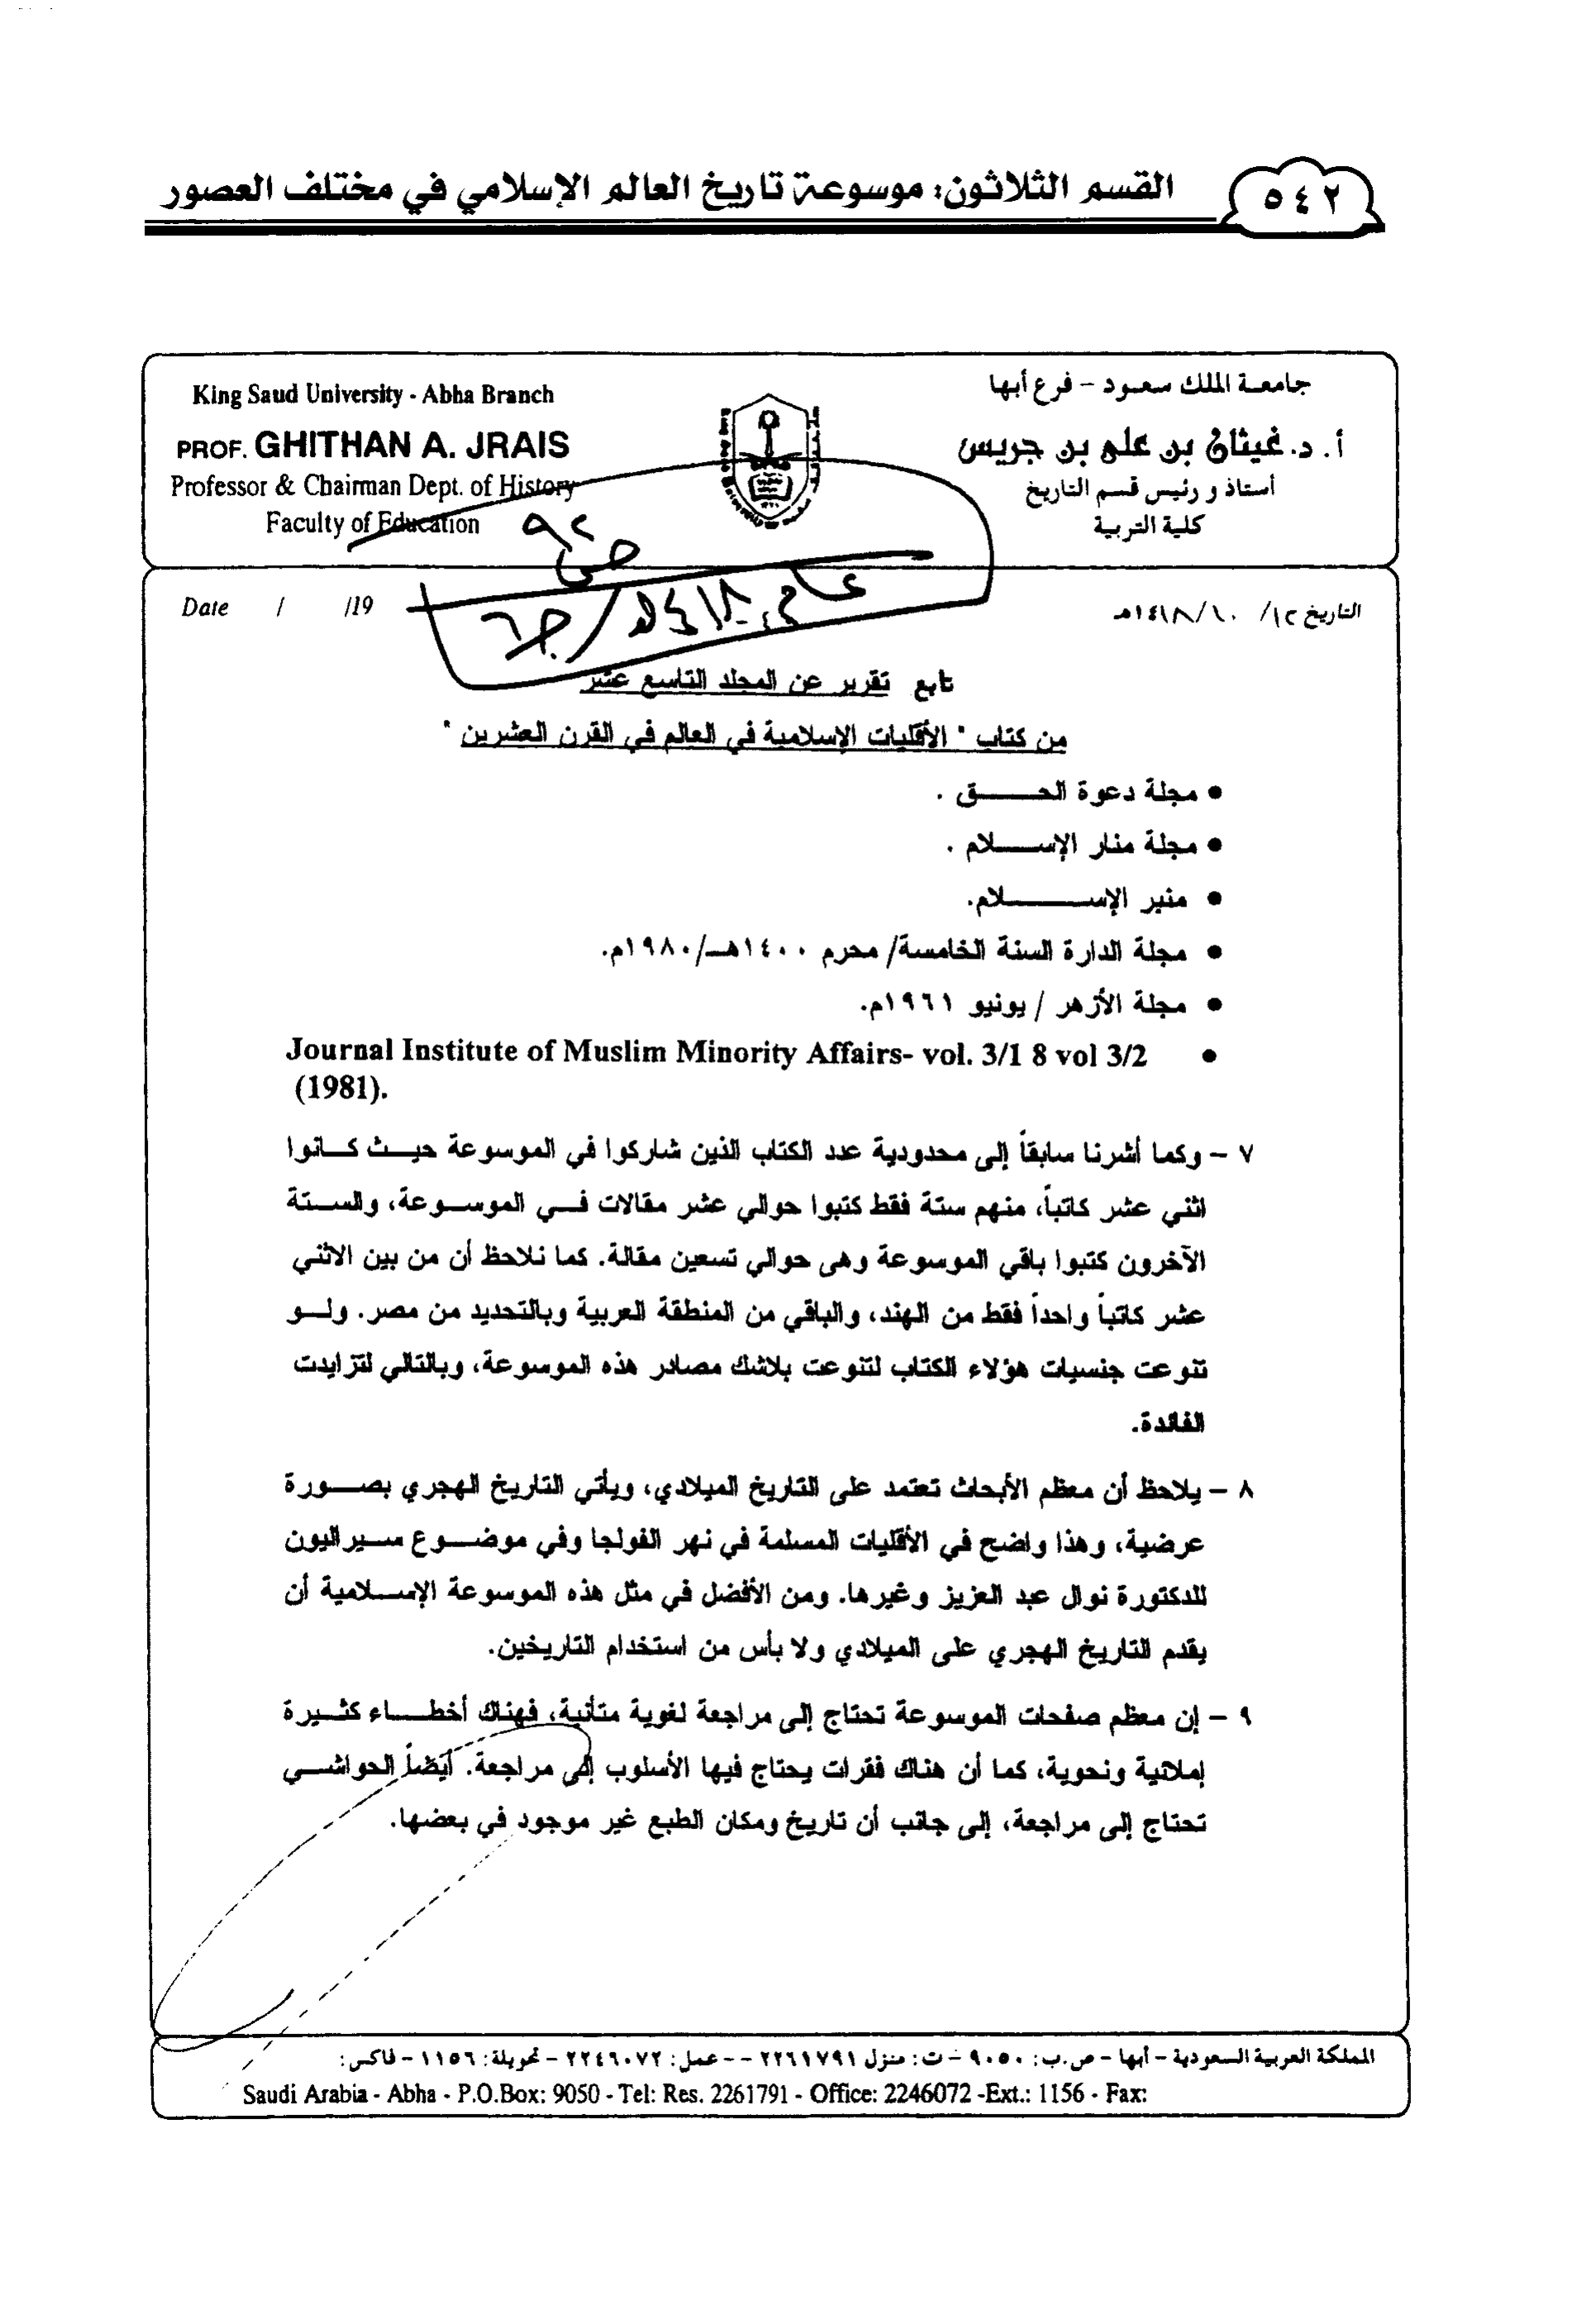 ٥٤٢
القسم الثلاثون: موسوعة تاريخ العالم الإسلامي في مختلف العصور
جامعة الملك سعود - فرع أبها
أ. د. غيثان بن علي بن جريس
أستاذ و رئيس قسم التاريخ
كلية التربية
King Saud University - Abha Branch
PROF. GHITHAN A. JRAIS
Professor & Chairman Dept. of History
Faculty of Education
التاريخ ١٢/ ١٠/ ١٤١٨هـ
Date / /19
تابع تقرير عن المجلد التاسع عشر
من كتاب " الأقليات الإسلامية في العالم في القرن العشرين "
• مجلة دعوة الحـــــق .
• مجلة منار الإســـــلام .
• منبر الإســـــلام.
• مجلة الدارة السنة الخامسة/ محرم ١٤٠٠هــ/١٩٨٠م.
• مجلة الأزهر / يونيو ١٩٦١م.
• Journal Institute of Muslim Minority Affairs- vol. 3/1 8 vol 3/2
(1981).
٧ - وكما أشرنا سابقاً إلى محدودية عدد الكتاب الذين شاركوا في الموسوعة حيـث كــانوا
اثني عشر كاتباً، منهم ستة فقط كتبوا حوالي عشر مقالات فــي الموســوعة، والســتة
الآخرون كتبوا باقي الموسوعة وهى حوالي تسعين مقالة. كما نلاحظ أن من بين الاثني
عشر كاتباً واحداً فقط من الهند، والباقي من المنطقة العربية وبالتحديد من مصر. ولــو
تنوعت جنسيات هؤلاء الكتاب لتنوعت بلاشك مصادر هذه الموسوعة، وبالتالي لتزايدت
الفائدة.
٨ - يلاحظ أن معظم الأبحاث تعتمد على التاريخ الميلادي، ويأتي التاريخ الهجري بصــورة
عرضية، وهذا واضح في الأقليات المسلمة في نهر الفولجا وفي موضــوع ســيراليون
للدكتورة نوال عبد العزيز وغيرها. ومن الأفضل في مثل هذه الموسوعة الإســلامية أن
يقدم التاريخ الهجري على الميلادي ولا بأس من استخدام التاريخين.
٩ - إن معظم صفحات الموسوعة تحتاج إلى مراجعة لغوية متأنية، فهناك أخطــاء كثــيرة
إملائية ونحوية، كما أن هناك فقرات يحتاج فيها الأسلوب إلى مراجعة. أيضاً الحواشــي
تحتاج إلى مراجعة، إلى جانب أن تاريخ ومكان الطبع غير موجود في بعضها.
المملكة العربية السعودية - أبها - ص.ب: ٩٠٥٠ - ت: منزل ٢٢٦١٧٩١ -- عمل: ٢٢٤٦٠٧٢ - تحويلة: ١١٥٦ - فاكس:
Saudi Arabia - Abha - P.O.Box: 9050 - Tel: Res. 2261791 - Office: 2246072 -Ext.: 1156 - Fax: